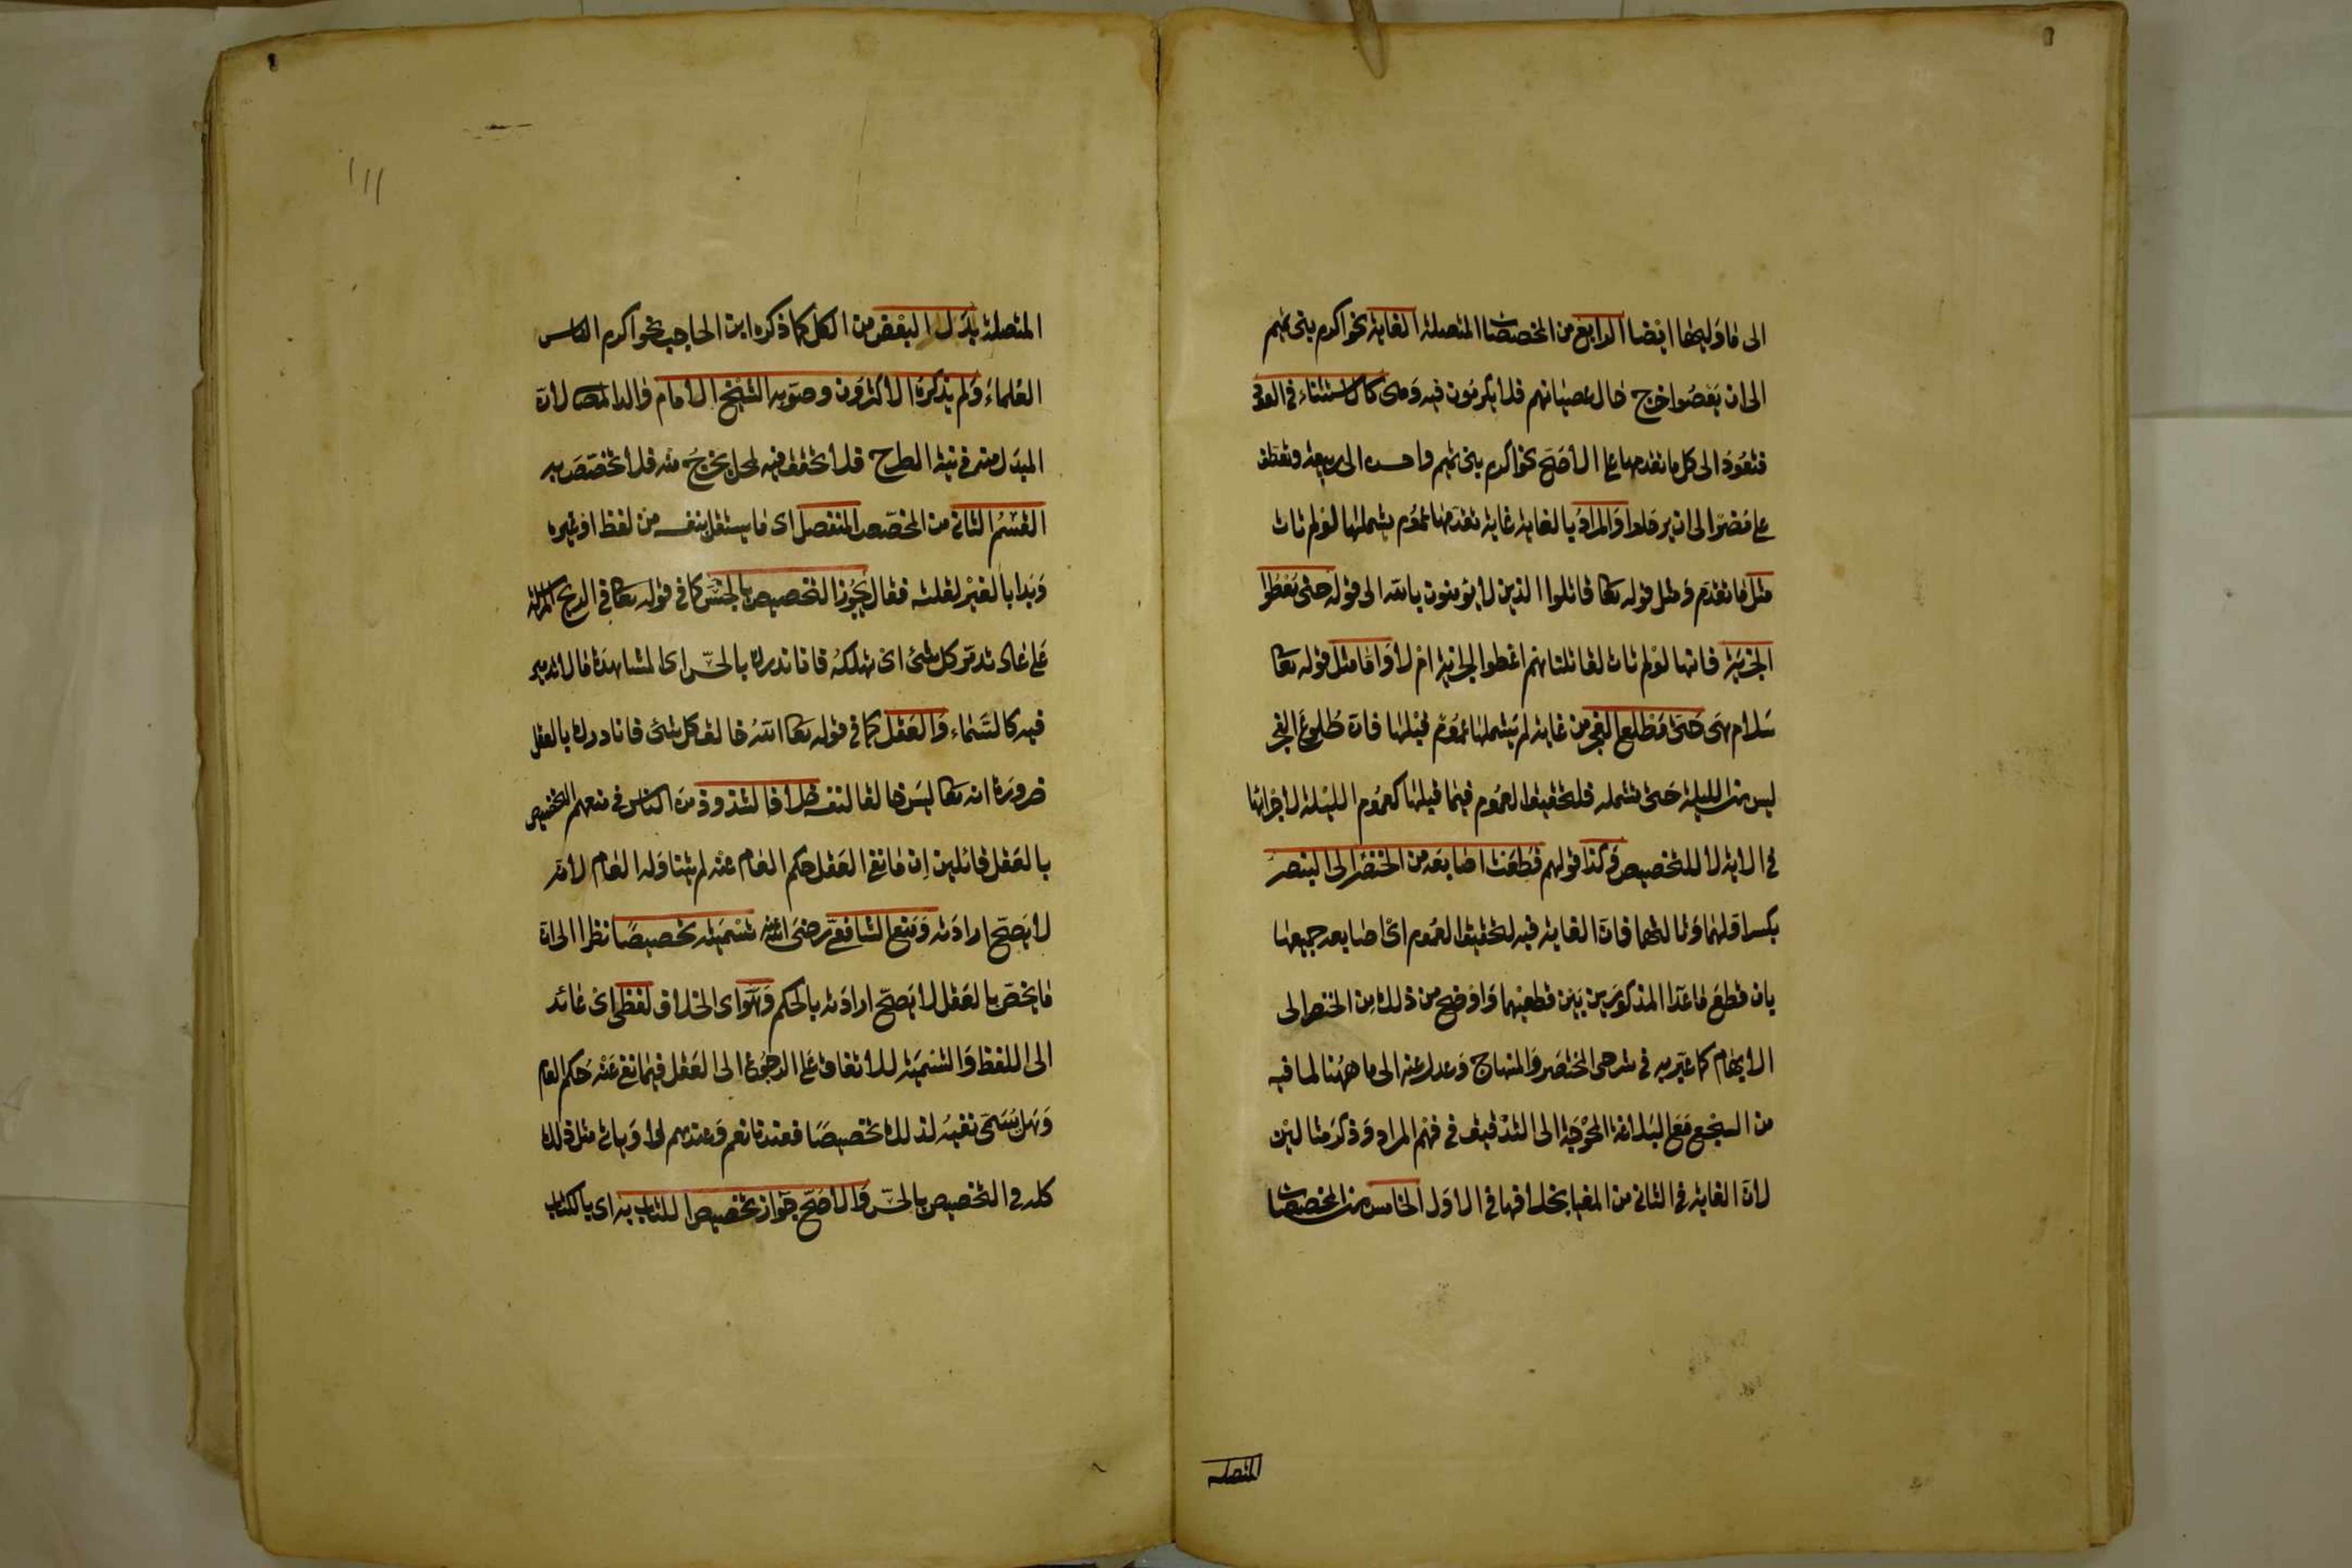 الى ما وليها ايضا الرابع من المخصصات المتصلة الغاية نحو اكرم بنى تميم
الى ان يعصوا خرج حال عصيانهم فلا يكرمون فيه وهى كالاستثناء فى العود
فتعود الى كل ما تقدمها على الاصح نحو اكرم بنى تميم واحسن الى ربيعة وتعطف
على مضر الى ان يرحلوا والمراد بالغاية غاية تقدمها عموم يشملها لو لم تات
مثل ما تقدم ومثل قوله تعا قاتلوا الذين لا يؤمنون بالله الى قوله حتى يعطوا
الجزية فانها لو لم تات لقاتلناهم اعطوا الجزية ام لا واما مثل قوله تعا
سلام هى حتى مطلع الفجر من غاية لم يشملها عموم قبلها فان طلوع الفجر
ليس من الليلة حتى تشمله فلتحقيق العموم فيما قبلها كعموم الليلة لاجزائها
فى الاية لا للتخصيص وكذا قولهم قطعت اصابعه من الخنصر الى البنصر
بكسر اولهما وثالثهما فان الغاية فيه لتحقيق العموم اى اصابعه جميعها
بان قطع ما عدا المذكورين بين قطعيهما واوضح من ذلك من الخنصر الى
الابهام كما عبر به فى شرحى المختصر والمنهاج وعدل عنه الى ما ههنا لما فيه
من السجع مع البلاغة المحوجة الى التدقيق فى فهم المراد وذكر مثالين
لان الغاية فى الثانى من المغيا بخلافها فى الاول الخامس من المخصصات
المتصلة
١١١
المتصلة بدل البعض من الكل كما ذكره ابن الحاجب نحو اكرم الناس
العلماء ولم يذكره الاكثرون وصوبهم الشيخ الامام والد المص لان
المبدل منه فى نية الطرح فلا تحقق فيه لمحل يخرج منه فلا تخصيص به
القسم الثانى من المخصص المنفصل اى ما يستقل بنفسه من لفظ او غيره
وبدا بالغير لقلته فقال يجوز التخصيص بالحس كما فى قوله تعا فى الريح المرسلة
على عاد تدمر كل شئ اى تهلكه فانا ندرك بالحس اى المشاهدة ما لا تدمير
فيه كالسماء والعقل كما فى قوله تعا الله خالق كل شئ فانا ندرك بالعقل
ضرورة انه تعا ليس خالقا لنفسه خلافا لشذوذ من الناس فى منعهم التخصيص
بالعقل قائلين ان ما نفى العقل حكم العام عنه لم يتناوله العام لانه
لا يصح ارادته ومنع الشافعى رضى الله عنه تسميته تخصيصا نظرا الى ان
ما يخص بالعقل لا يصح ارادته بالحكم وهو اى الخلاف لفظى اى عائد
الى اللفظ والتسمية للاتفاق على الرجوع الى العقل فيما نفى عنه حكم العام
وهل يسمى نفيه لذلك تخصيصا فعندنا نعم وعندهم لا وياتى مثل ذلك
كله فى التخصيص بالحس والاصح جواز تخصيص الكتاب به اى بالكتاب